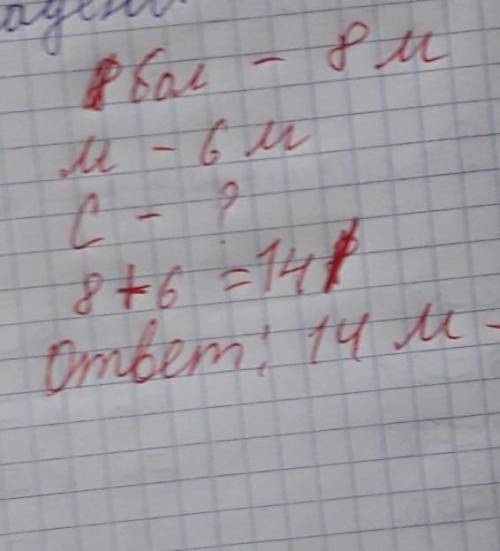 Бол - 8 м
м - 6 м
С - ?
8 + 6 = 14
Ответ: 14 м -